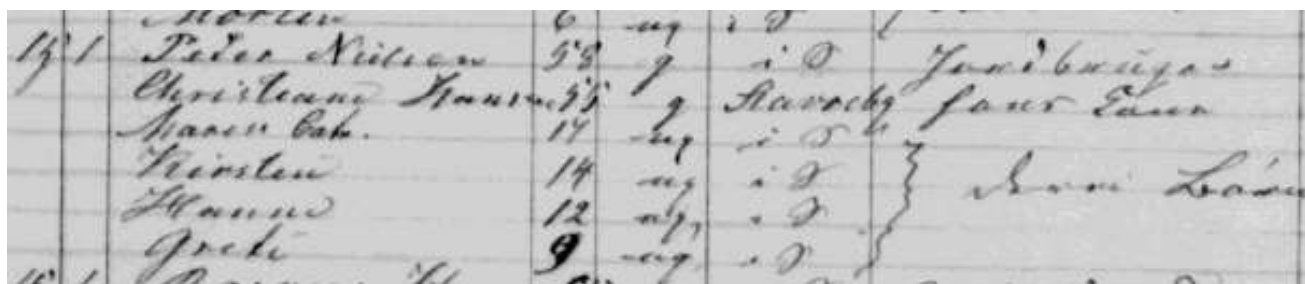 Morten 6 ug i S
1 Peder Nielsen 58 g i S Jordbruger
Christiane Hansen 55 g Stavreby hans Kone
Maren Cath. 17 ug i S
Kirsten 14 ug i S deres Børn
Hanne 12 ug i S
Grete 9 ug i S